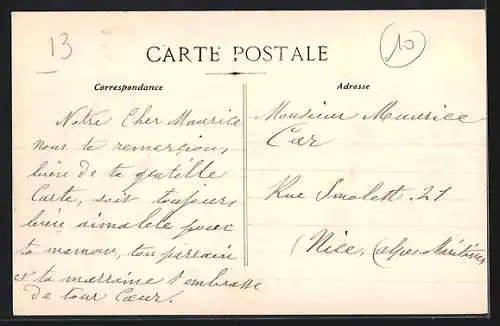 13
10
CARTE POSTALE
Correspondance
Adresse
Notre Cher Maurice
nous te remerçion,
bien de ta gentille
Carte, sois toujours
bien aimable pour
ta maman, ton parrain
et ta marraine t'embrasse
de tour Cœur.
Monsieur Maurice
Rue Smolett. 21
(Nice, (alpes Maritimes